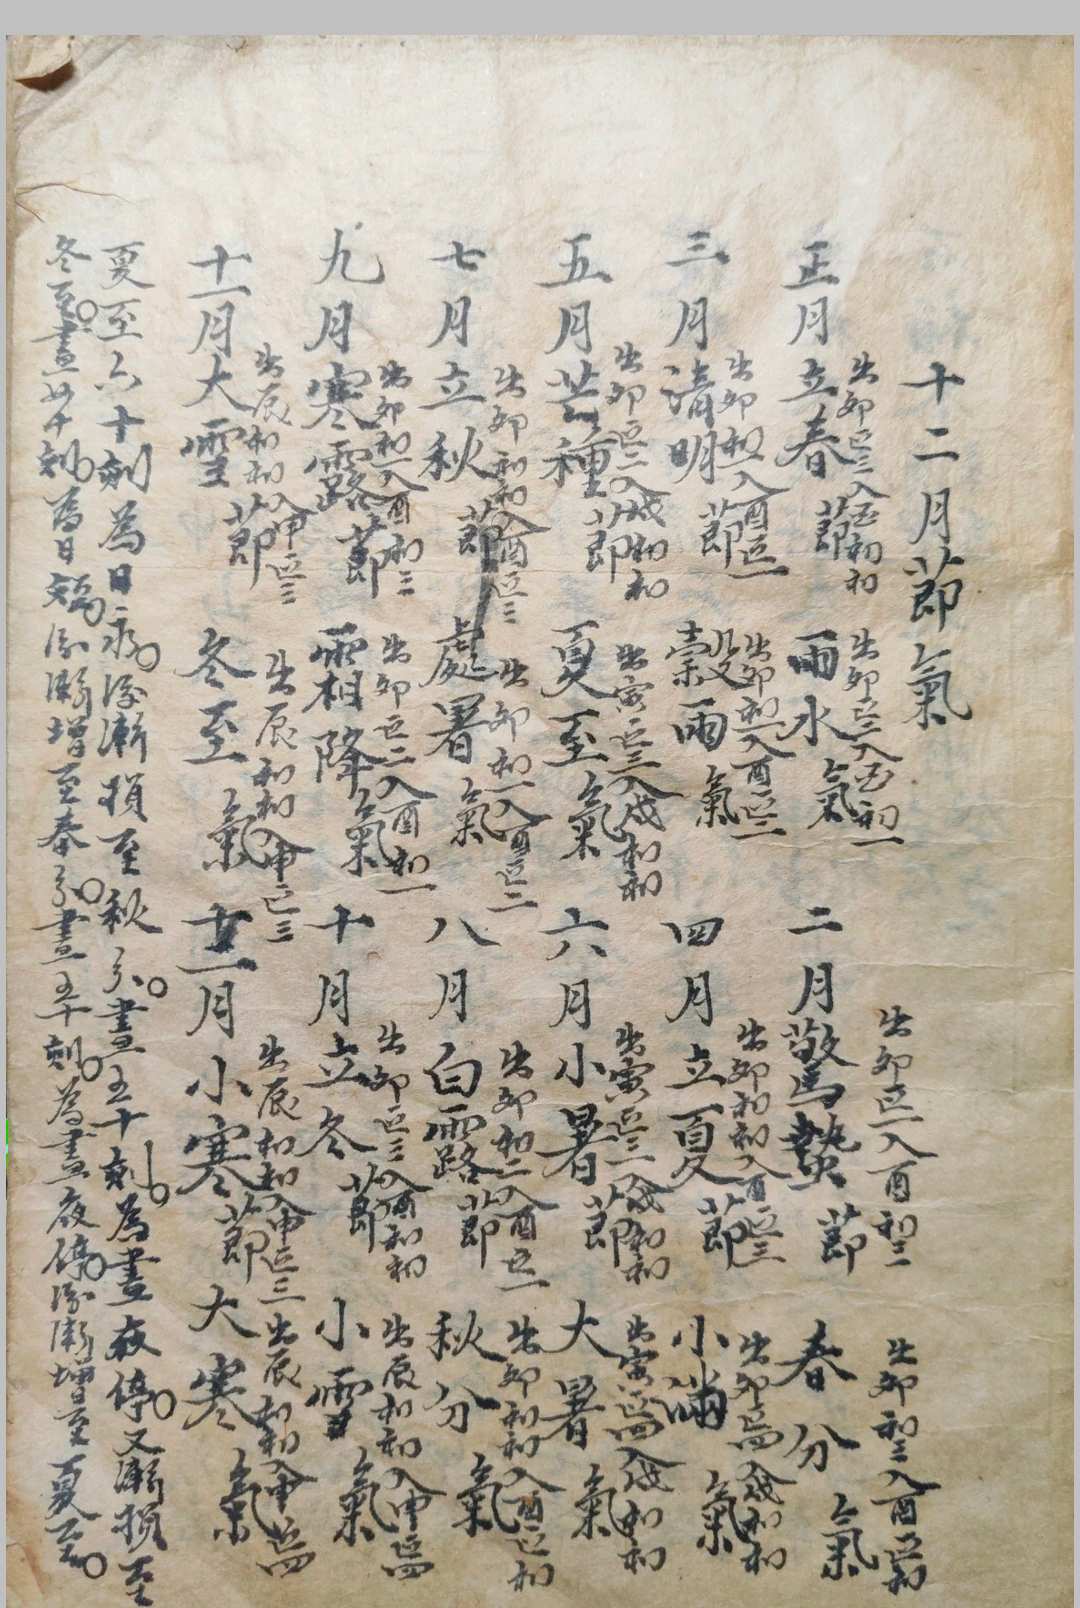 十二月莭氣
正月立春莭 出卯正三入酉初初 雨水氣 出卯正三入酉初一
二月驚蟄莭 出卯正一入酉初二 春分氣 出卯初三入酉正初
三月清明莭 出卯初一入酉正一 穀雨氣 出卯初一入酉正二
四月立夏莭 出卯初初入酉正三 小滿氣 出卯正四入戌初初
五月芒種莭 出卯正二入戌初初 夏至氣 出寅正三入戌初初
六月小暑莭 出寅正三入戌初初 大暑氣 出寅正四入戌初初
七月立秋莭 出卯初初入酉正三 處暑氣 出卯初一入酉正二
八月白露莭 出卯初二入酉正一 秋分氣 出卯初初入酉正初
九月寒露莭 出卯初一入酉初三 霜降氣 出卯正二入酉初一
十月立冬莭 出卯正三入酉初初 小雪氣 出辰初初入申正四
十一月大雪莭 出辰初初入申正三 冬至氣 出辰初初入申正三
十二月小寒莭 出辰初初入申正三 大寒氣 出辰初初入申正四
夏至六十刻為日永後漸損至秋分晝五十刻為晝夜停又漸損至
冬至晝四十刻為日短後漸增至春分晝五十刻為晝夜停後漸增至夏至